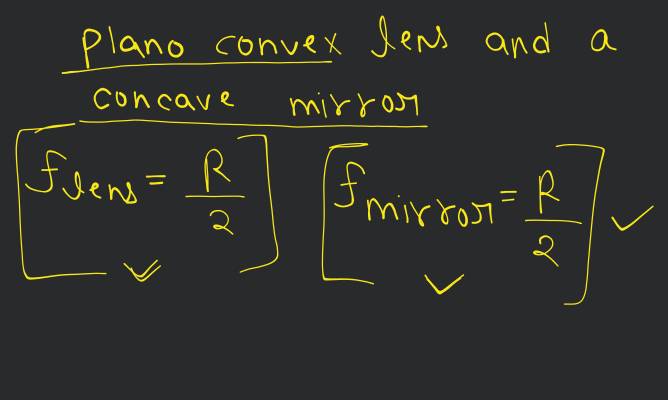 Plano convex lens and a
concave mirror
[f lens = R/2] [f mirror = R/2] ✓
✓ ✓